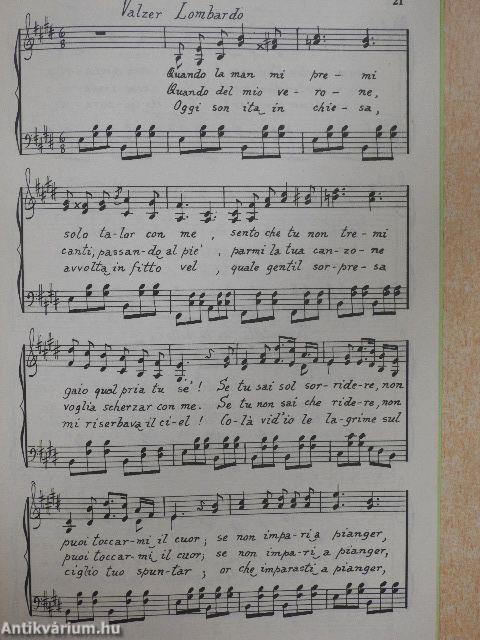 Valzer Lombardo
21
Quando la man mi pre - mi
Quando del mio ve - ro - ne,
Oggi son ita in chie - sa,
solo ta-lor con me, sento che tu non tre - mi
canti, passan-do al pie', parmi la tua can-zo - ne
avvolta in fitto vel, quale gentil sor-pre - sa
gaio qual pria tu se'! Se tu sai sol sor-ridere, non
voglia scherzar con me. Se tu non sai che ridere, non
mi riserbava il ci-el! Co-là vid'io le la-grime sul
puoi toccar-mi il cuor; se non impa-ri a pianger,
puoi toccar-mi il cuor; se non impa-ri a pianger,
ciglio tuo spun-tar, or che imparasti a pianger,
Antikvárium.hu